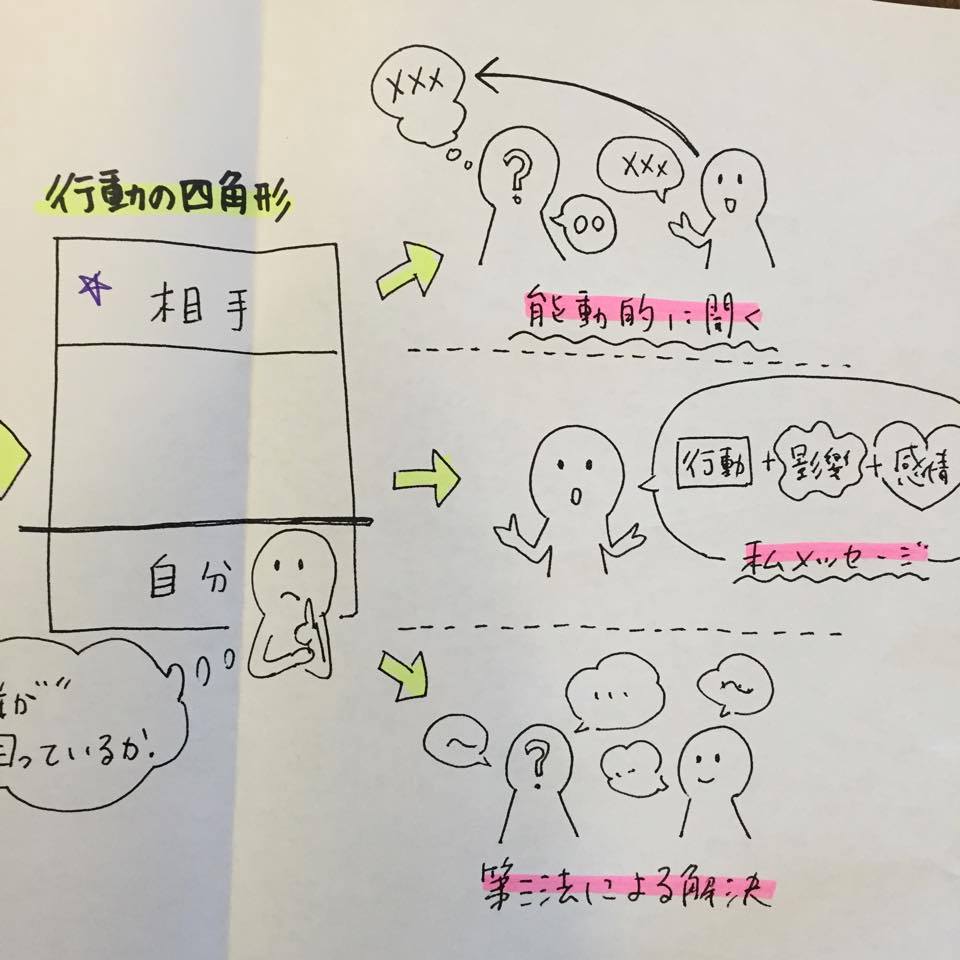 行動の四角形
相手
自分
誰が
困っているか!
xxx
?
xxx
oo
能動的に聞く
行動+影響+感情
私メッセージ
...
?
...
第三法による解決